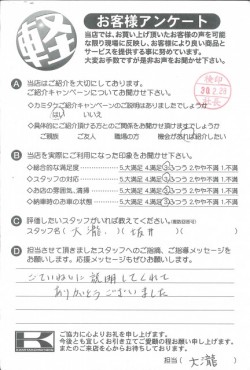 軽
お客様アンケート
当店では、お買い上げ頂いたお客様の声を可能
な限り現場に反映し、お客様により良い商品と
サービスを提供する事に努めています。
大変お手数ですが是非お声をお聞かせ下さい。
検印
A 当店はご紹介を大切にしております。
ご紹介キャンペーンについてお聞かせ下さい。
◇カミタケご紹介キャンペーンのご説明はありましたでしょうか
はい いいえ
◇具体的にご紹介頂ける方とのご関係をお聞かせ頂けますでしょうか
ご家族 ご友人 職場の方 機会があれば紹介したい
B 当店を実際にご利用になった印象をお聞かせ下さい。
◇総合的な満足度 5.大満足 4.満足 3.ふつう 2.やや不満 1.不満
◇スタッフの対応 5.大満足 4.満足 3.ふつう 2.やや不満 1.不満
◇お店の雰囲気、清掃 5.大満足 4.満足 3.ふつう 2.やや不満 1.不満
◇納車時のお車の状態 5.大満足 4.満足 3.ふつう 2.やや不満 1.不満
C 評価したいスタッフがいれば教えてください。(複数回答可)
スタッフ名( 大瀧 )( )( )
D 担当させて頂きましたスタッフへのご指摘、ご指導メッセージを
お願いします。応援メッセージもぜひお願いします。
ていねいに説明してくれて
ありがとうございました
K
ご協力に心よりお礼を申し上げます。
今後とも宜しくお引き立てご愛顧の程お願い申し上げます。
またのご来店を心からお待ちしております。
担当( 大瀧 )